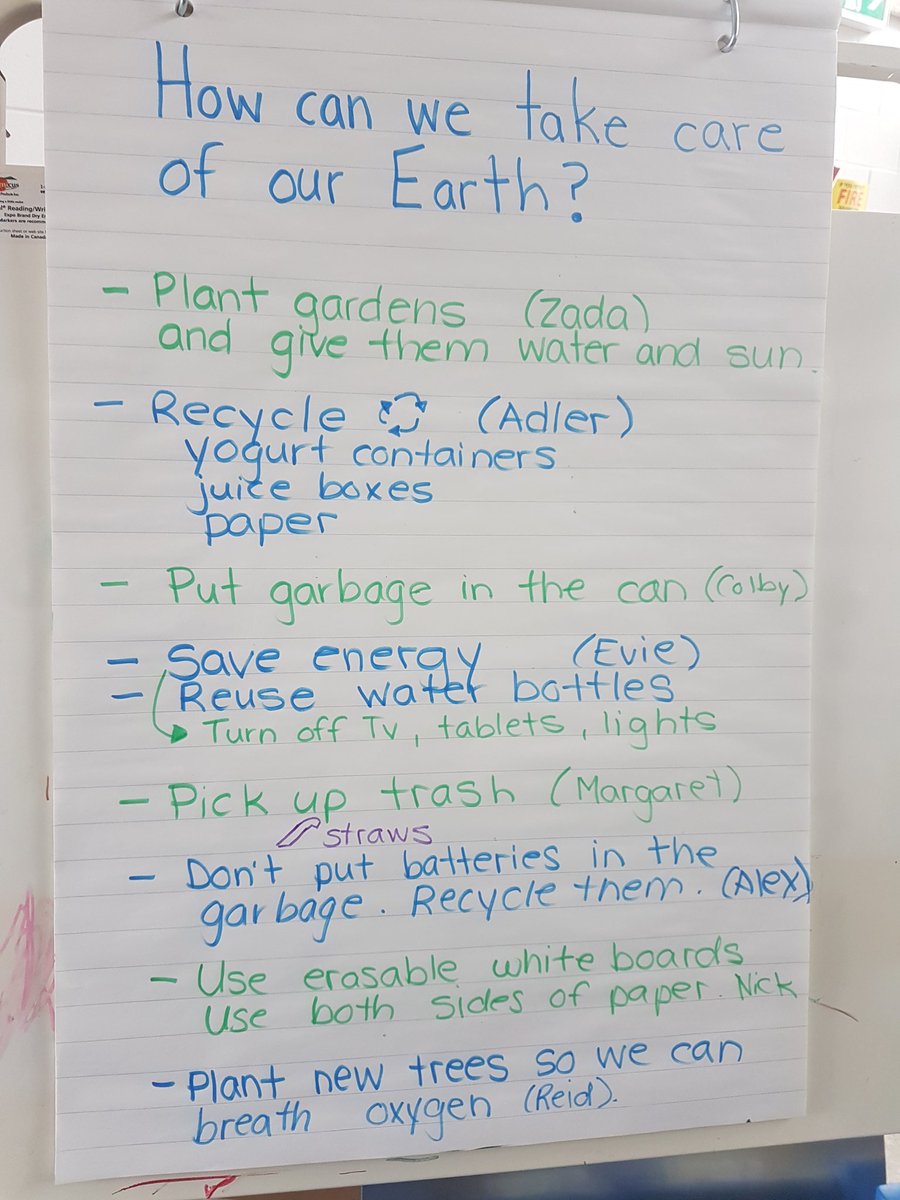 How can we take care
of our Earth?
- Plant gardens (Zada)
and give them water and sun.
- Recycle (Adler)
yogurt containers
juice boxes
paper
- Put garbage in the can (Colby)
- Save energy (Evie)
- Reuse water bottles
Turn off Tv, tablets, lights
- Pick up trash (Margaret)
straws
- Don't put batteries in the
garbage. Recycle them. (Alex)
- Use erasable white boards
Use both sides of paper. Nick
- Plant new trees so we can
breath oxygen (Reid).
Reading/Wri
Expo Brand Dry E
Made in Canada
FIRE